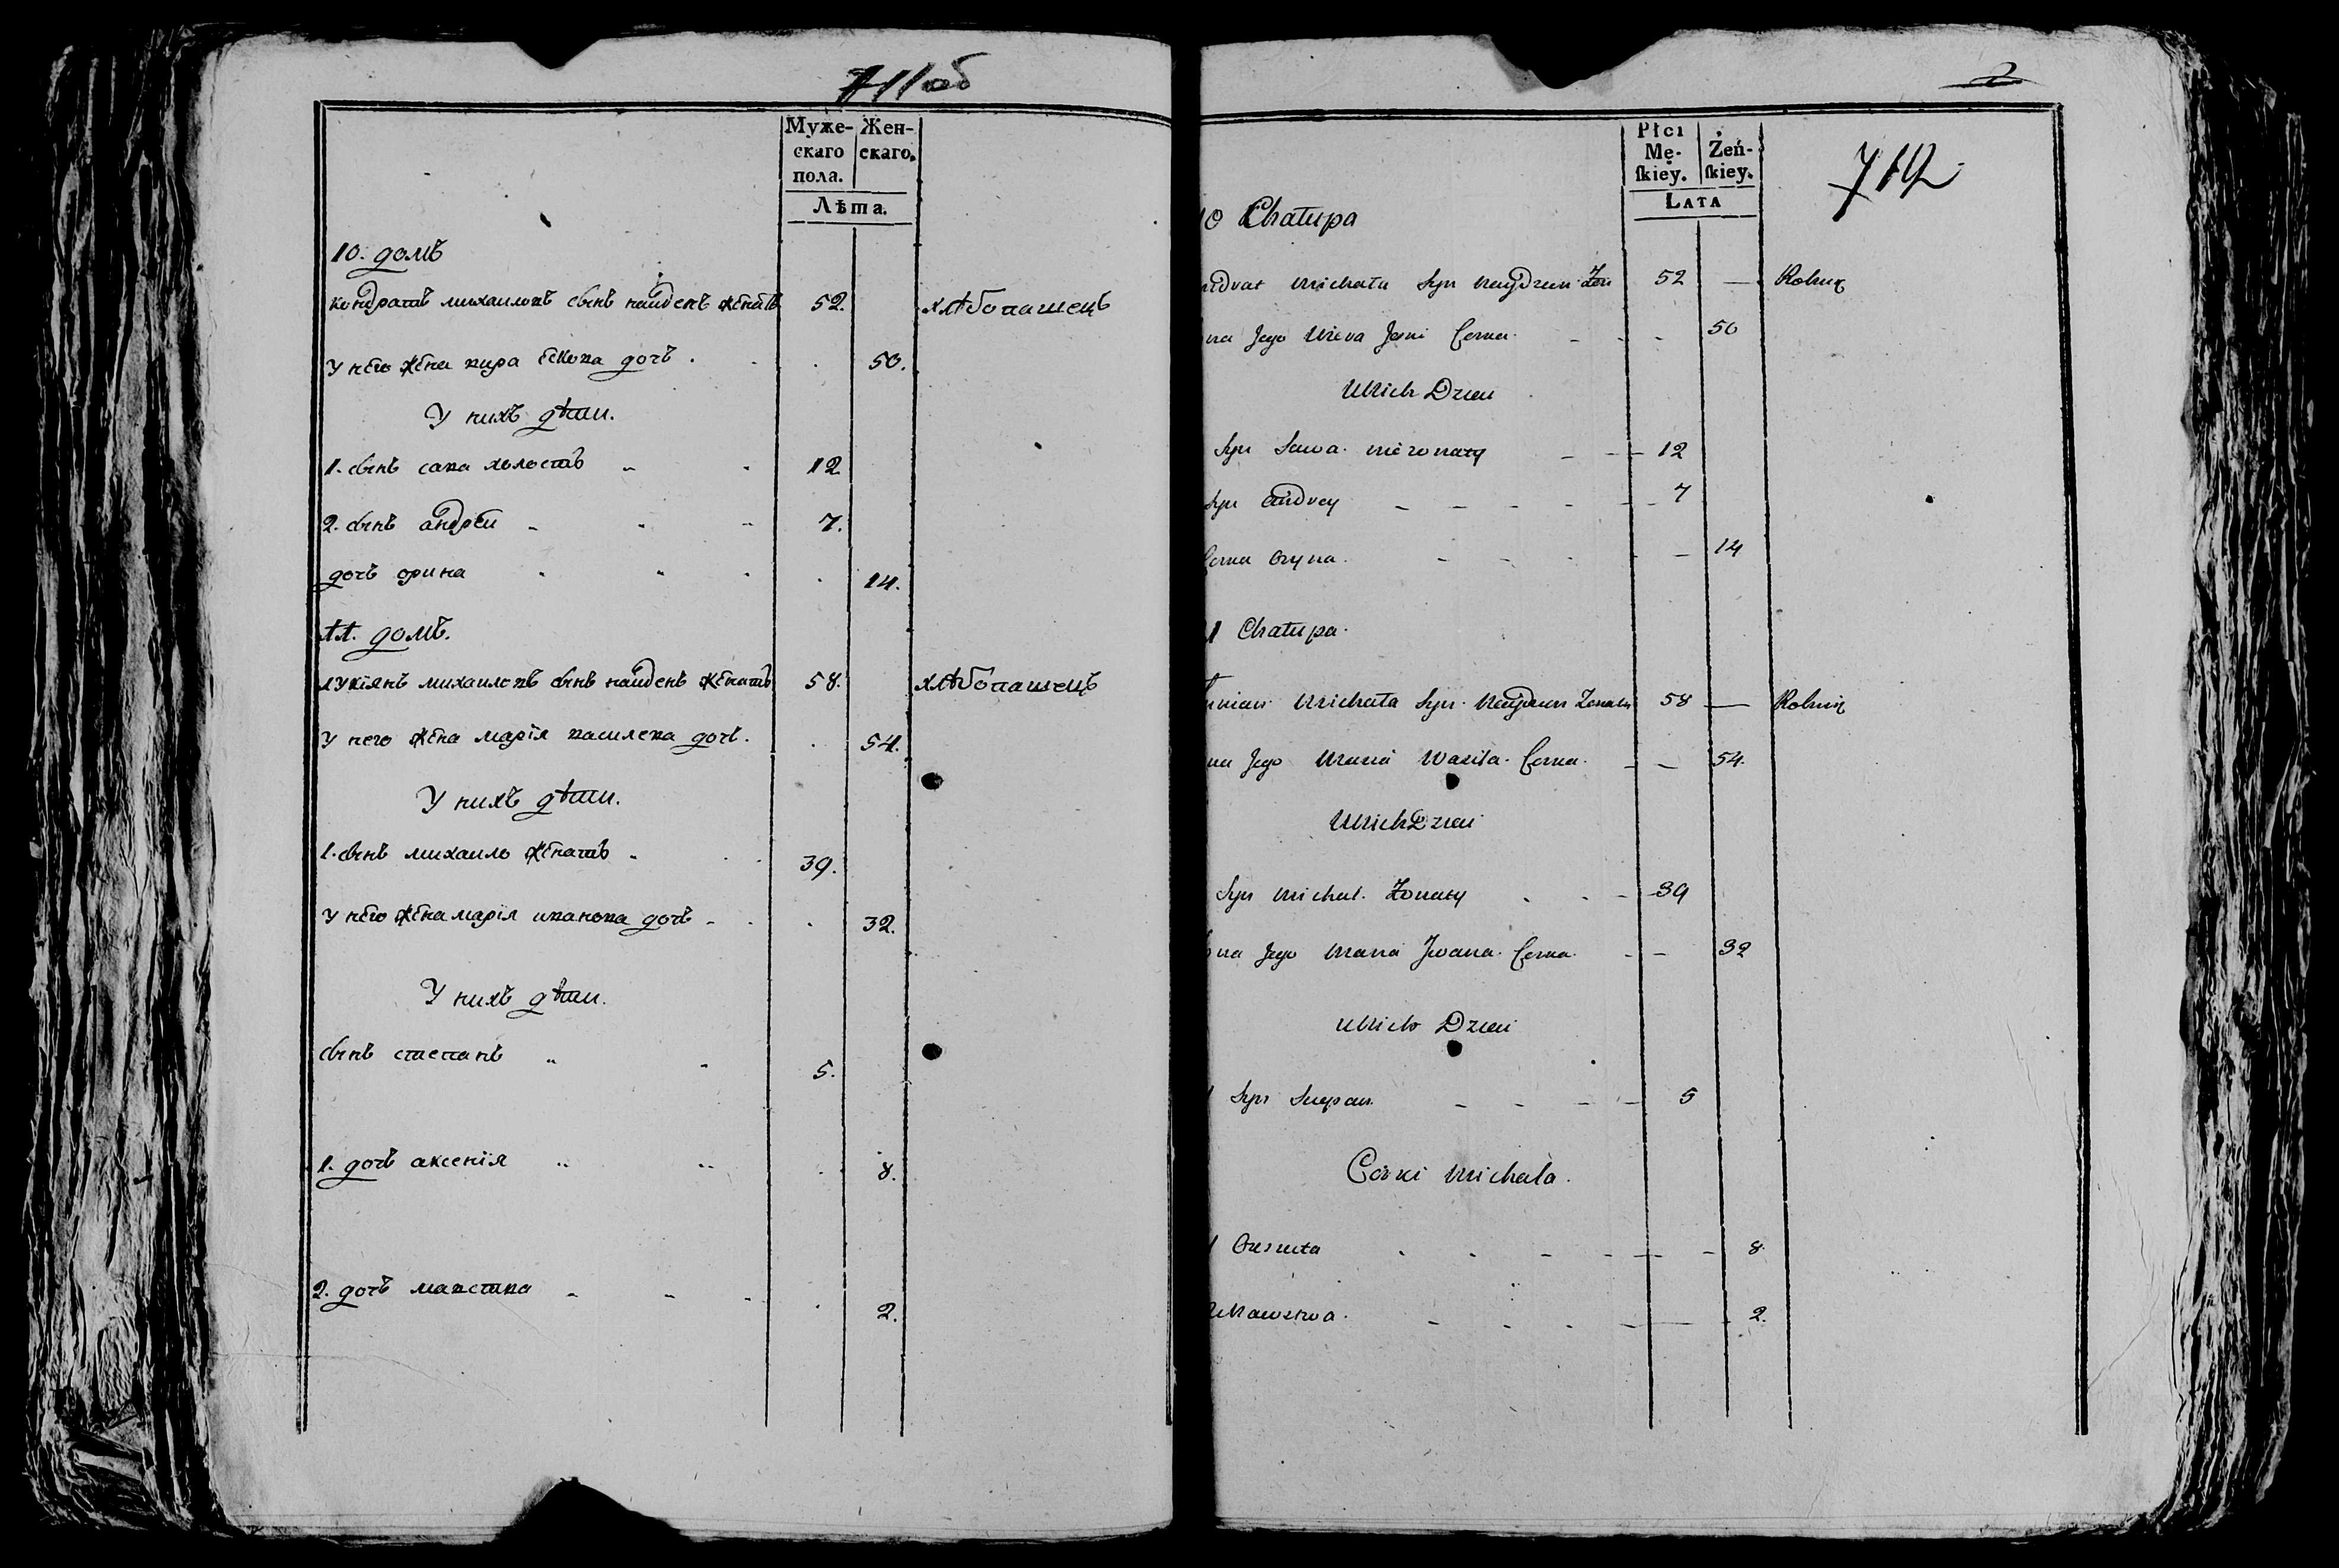 711об
Муже- Жен-
скаго скаго.
пола.
Лѣта.
10. домъ
кондратъ михаиловъ сынъ найденъ женатъ 52. хлѣбопашецъ
У него жена кира дочъ . 50.
У нихъ дѣти.
1. сынъ сава холостъ 12
2. сынъ андрей 7.
дочъ орина 14.
11. домъ.
лукіянъ михаиловъ сынъ найденъ женатъ 58. хлѣбопашецъ
У него жена марія василева дочъ. 54.
У нихъ дѣти.
1. сынъ михаило женатъ 39.
У него жена марія иванова дочъ 32.
У нихъ дѣти.
сынъ степанъ 5.
1. дочъ аксенія 8.
2. дочъ мавстива 2.
2
712
Płci
Mę- Żeń-
ſkiey. ſkiey.
LATA
10 Chałupa
Michała Syn Naydzen Żon 52 — Rolnik
na Jego Corka 50
U Nich Dzieci
Syn Sawa nieżonaty 12
Syn Andrey 7
Corka Oryna 14
1 Chałupa
Michała Syn Naydzen Żonaty 58 — Rolnik
na Jego Maria Wasila Corka 54.
U Nich Dzieci
Syn Michał Żonaty 39
na Jego Maria Jwana Corka 32
U Nich Dzieci
1 Syn Stepan 5
Córki Michała.
1 8.
2 2.